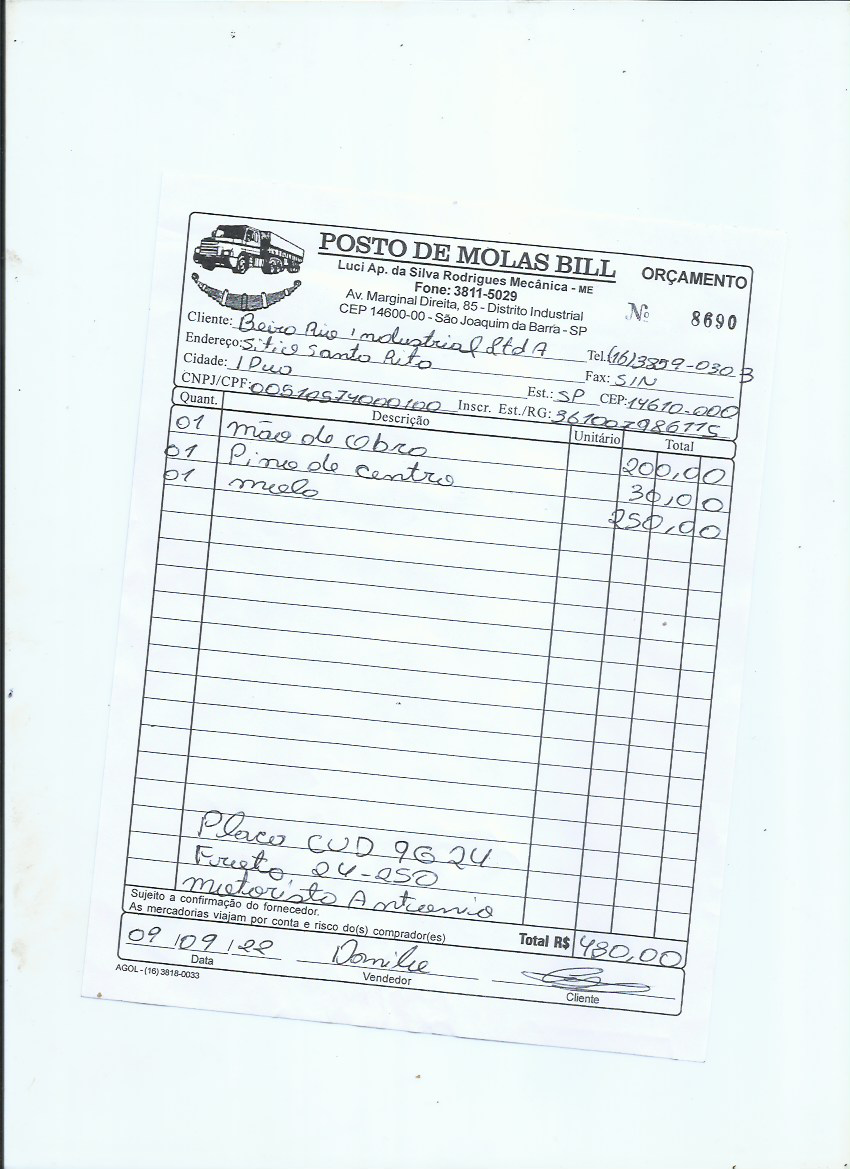 POSTO DE MOLAS BILL
ORÇAMENTO
Luci Ap. da Silva Rodrigues Mecânica - ME
Fone: 3811-5029
Av. Marginal Direita, 85 - Distrito Industrial
CEP 14600-00 - São Joaquim da Barra - SP
Nº 8690
Cliente: Beira Rio Industrial Ltda
Tel. (16) 3859-0303
Endereço: Sitio Santa Rita
Fax: S/N
Cidade: Ipua
Est.: SP CEP: 14610-000
CNPJ/CPF: 00510574000100 Inscr. Est./RG: 361007986115
Quant. Descrição Unitário Total
01 mão de obra 200,00
01 Pino de centro 30,00
01 mola 250,00
Placa CUD 9G24
Frota 24-250
Motorista Antonio
Sujeito a confirmação do fornecedor.
As mercadorias viajam por conta e risco do(s) comprador(es)
Total R$ 480,00
09/09/22
Data
Vendedor
Cliente
AGOL - (16) 3818-0033